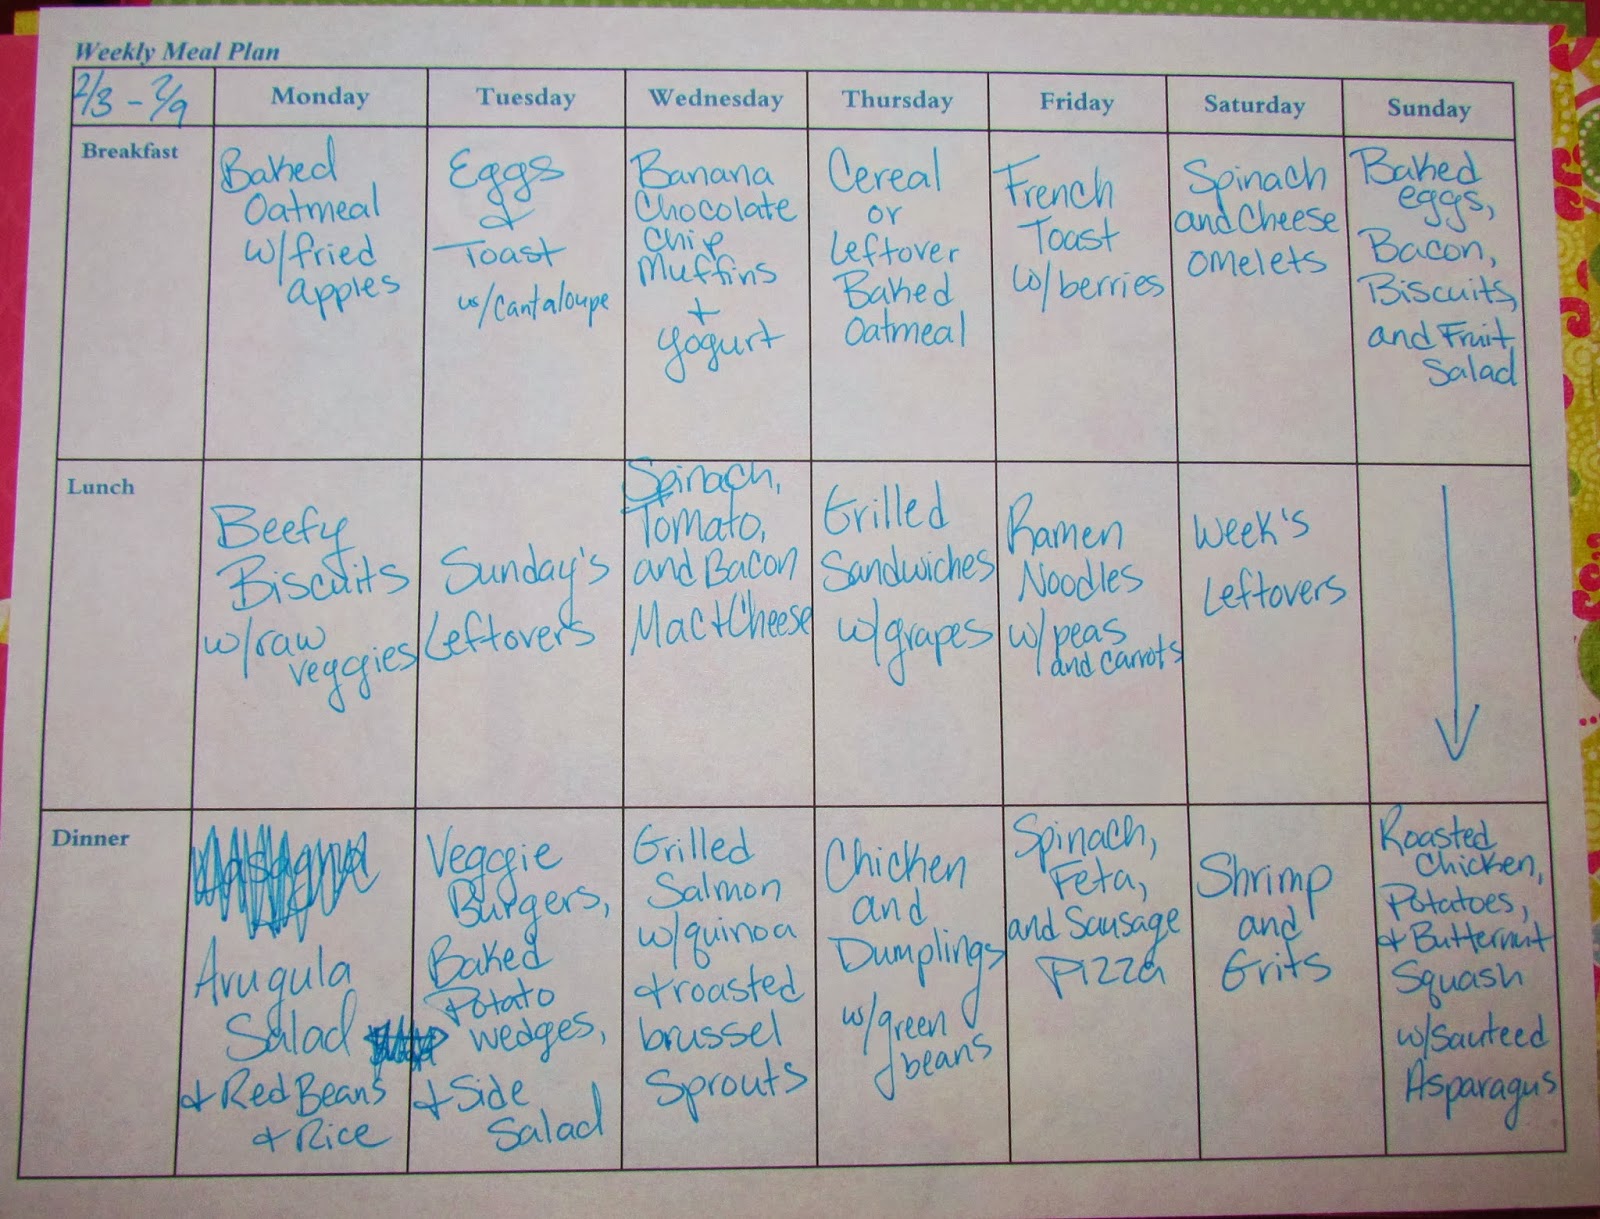 Weekly Meal Plan
2/3 - 2/9
Monday
Tuesday
Wednesday
Thursday
Friday
Saturday
Sunday
Breakfast
Baked
Oatmeal
w/fried
apples
Eggs
&
Toast
w/Cantaloupe
Banana
Chocolate
Chip
Muffins
+
Yogurt
Cereal
or
Leftover
Baked
Oatmeal
French
Toast
w/berries
Spinach
and Cheese
omelets
Baked
eggs,
Bacon,
Biscuits,
and Fruit
Salad
Lunch
Beefy
Biscuits
w/raw
veggies
Sunday's
Leftovers
Spinach,
Tomato,
and Bacon
Mac+Cheese
Grilled
Sandwiches
w/grapes
Ramen
Noodles
w/peas
and carrots
Week's
Leftovers
Dinner
Lasagna
Arugula
Salad
& Red Beans
& Rice
Veggie
Burgers,
Baked
Potato
wedges,
& Side
Salad
Grilled
Salmon
w/quinoa
& roasted
brussel
Sprouts
Chicken
and
Dumplings
w/green
beans
Spinach,
Feta,
and Sausage
Pizza
Shrimp
and
Grits
Roasted
Chicken,
Potatoes,
& Butternut
Squash
w/Sauteed
Asparagus